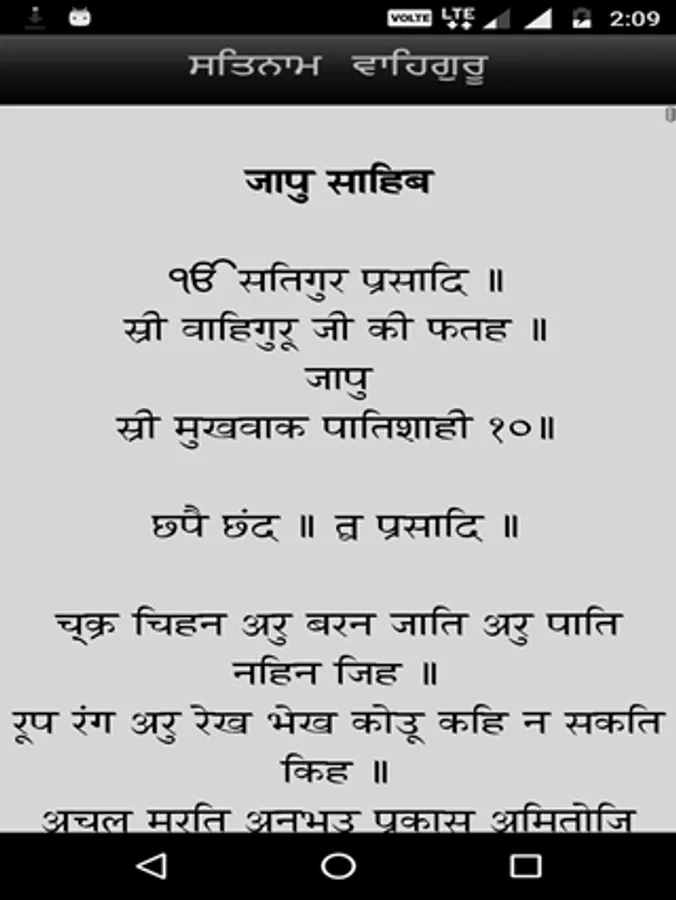 VOLTE LTE 2:09
ਸਤਿਨਾਮ ਵਾਹਿਗੁਰੂ
जापु साहिब
ੴ सतिगुर प्रसादि ॥
स्री वाहिगुरू जी की फतह ॥
जापु
स्री मुखवाक पातिशाही १०॥
छपै छंद ॥ त्व प्रसादि ॥
च्क्र चिहन अरु बरन जाति अरु पाति
नहिन जिह ॥
रूप रंग अरु रेख भेख कोउू कहि न सकति
किह ॥
अचल मूरति अनभउ प्रकास अमितोजि